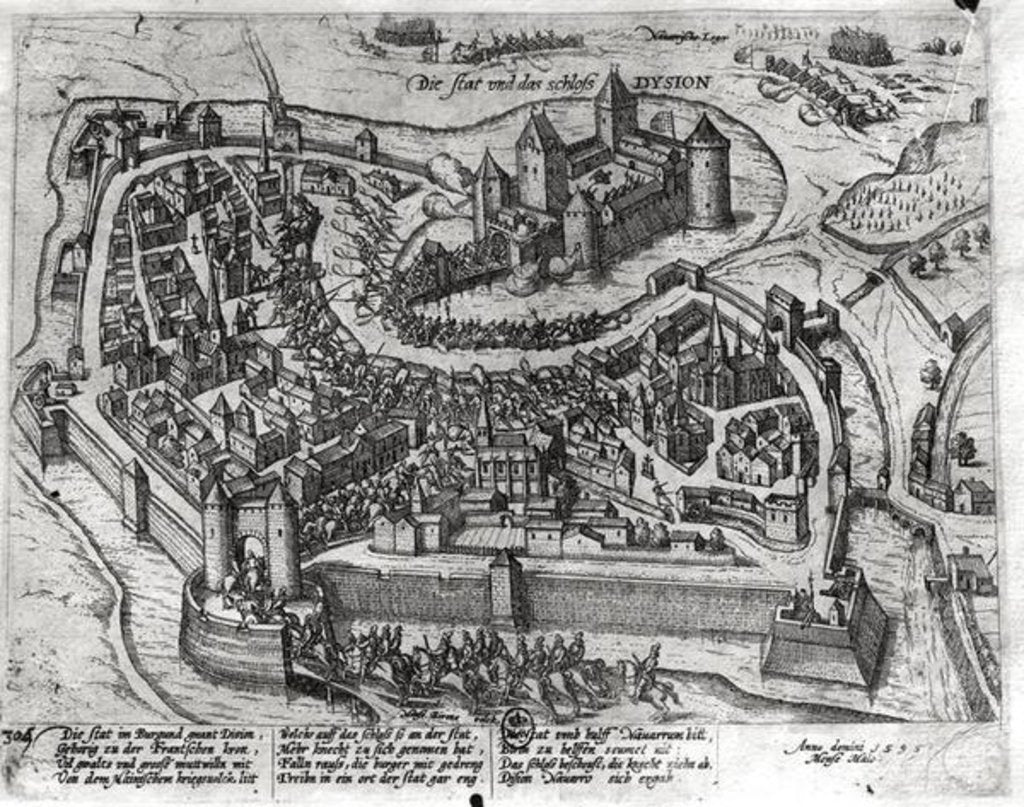 Navarrische Leger
Die stat vnd das schloss DYSION
306
Die stat im Burgund gnant Dision,
Gehörig zu der Frantschen kron,
Vil gwalts vnd gross mutwilln mit
Von dem Mainischen kriegsvolck litt
Welchr auff das schloss so an der stat,
Mehr knecht zu sich genomen hat,
Falln rauss, die burger mit gedreng
Treibn in ein ort der stat gar eng.
stat vmb hülff Nauarrum bitt,
Birm zu helffen seumet nit:
Das schloss beschenst, die knecht ziehn ab,
Dision Nauarro sich ergab.
Anno domini 1595
Mense Maio